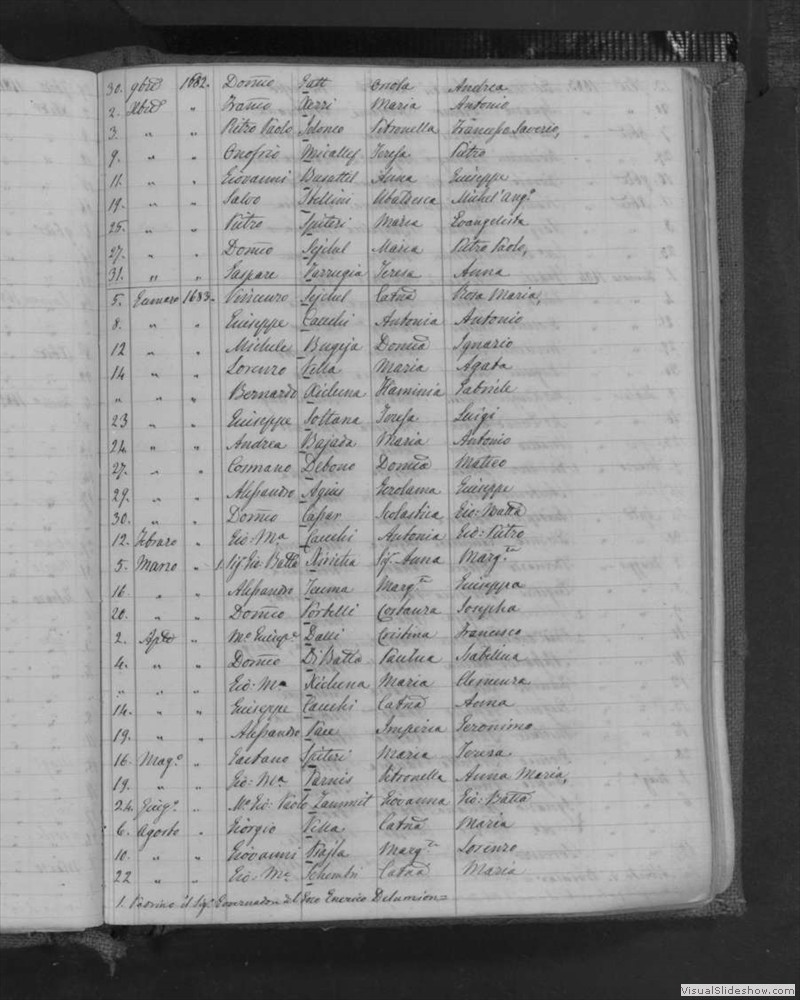 30. 9bre 1682. Dom̃co Gatt Onofa Andrea
2. Xbre " Dom̃co Xerri Maria Antonio
3. " " Pietro Paolo Petronella Francesco Saverio,
9. " " Onofrio Micallef Teresa Pietro
11. " " Giovanni Busuttil Anna Giuseppe
19. " " Salvo Stellini Ubaldesca Michel'Ang.º
25. " " Pietro Spiteri Maria Evangelista
27. " " Dom̃co Sejchel Maria Pietro Paolo,
31. " " Gaspare Farrugia Teresa Anna
5. Gennaro 1683. Vincenzo Sejchel Catña Rosa Maria,
8. " " Giuseppe Cauchi Antonia Antonio
12 " " Michele Bugeja Domca Ignazio
14 " " Lorenzo Vella Maria Agata
" " " Bernardo Xicluna Flaminia Gabriele
23 " " Giuseppe Soltana Teresa Luigi
24. " " Andrea Bajada Maria Antonio
27. " " Cosmano Debono Domca Matteo
29. " " Alessandro Agius Gerolama Giuseppe
30. " " Dom̃co Caspar Scolastica Gio: Batta
12. Febraro " Gio: Mª Cauchi Antonia Gio: Pietro
5. Marzo " 1. Sig. Gio: Batta Sig. Anna Marg.ta
16 " " Alessandro Teuma Marg.ta Giuseppa
20. " " Dom̃co Portelli Costanza Josepha
2. Aple " Mº Giusp.e Dalli Cristina Francesco
4. " " Dom̃co Di Batta Paulina Isabellica
" " " Gio: Mª Xicluna Maria Clemenza
14. " " Giuseppe Cauchi Catña Anna
19. " " Alessandro Pace Imperia Geronimo
16 Mag.º " Gaetano Spiteri Maria Teresa
19. " " Gio: Mª Farnis Petronella Anna Maria,
24. Giug.º " Mº Gio: Paolo Zammit Giovanna Gio: Batta
6. Agosto " Giorgio Vella Catña Maria
10. " " Giovanni Xajla Marg.ta Lorenzo
22 " " Gio: Mª Schembri Catña Maria
1. Padrino il Sig.r Governadore del Gozo Enerico
VisualSlideshow.com